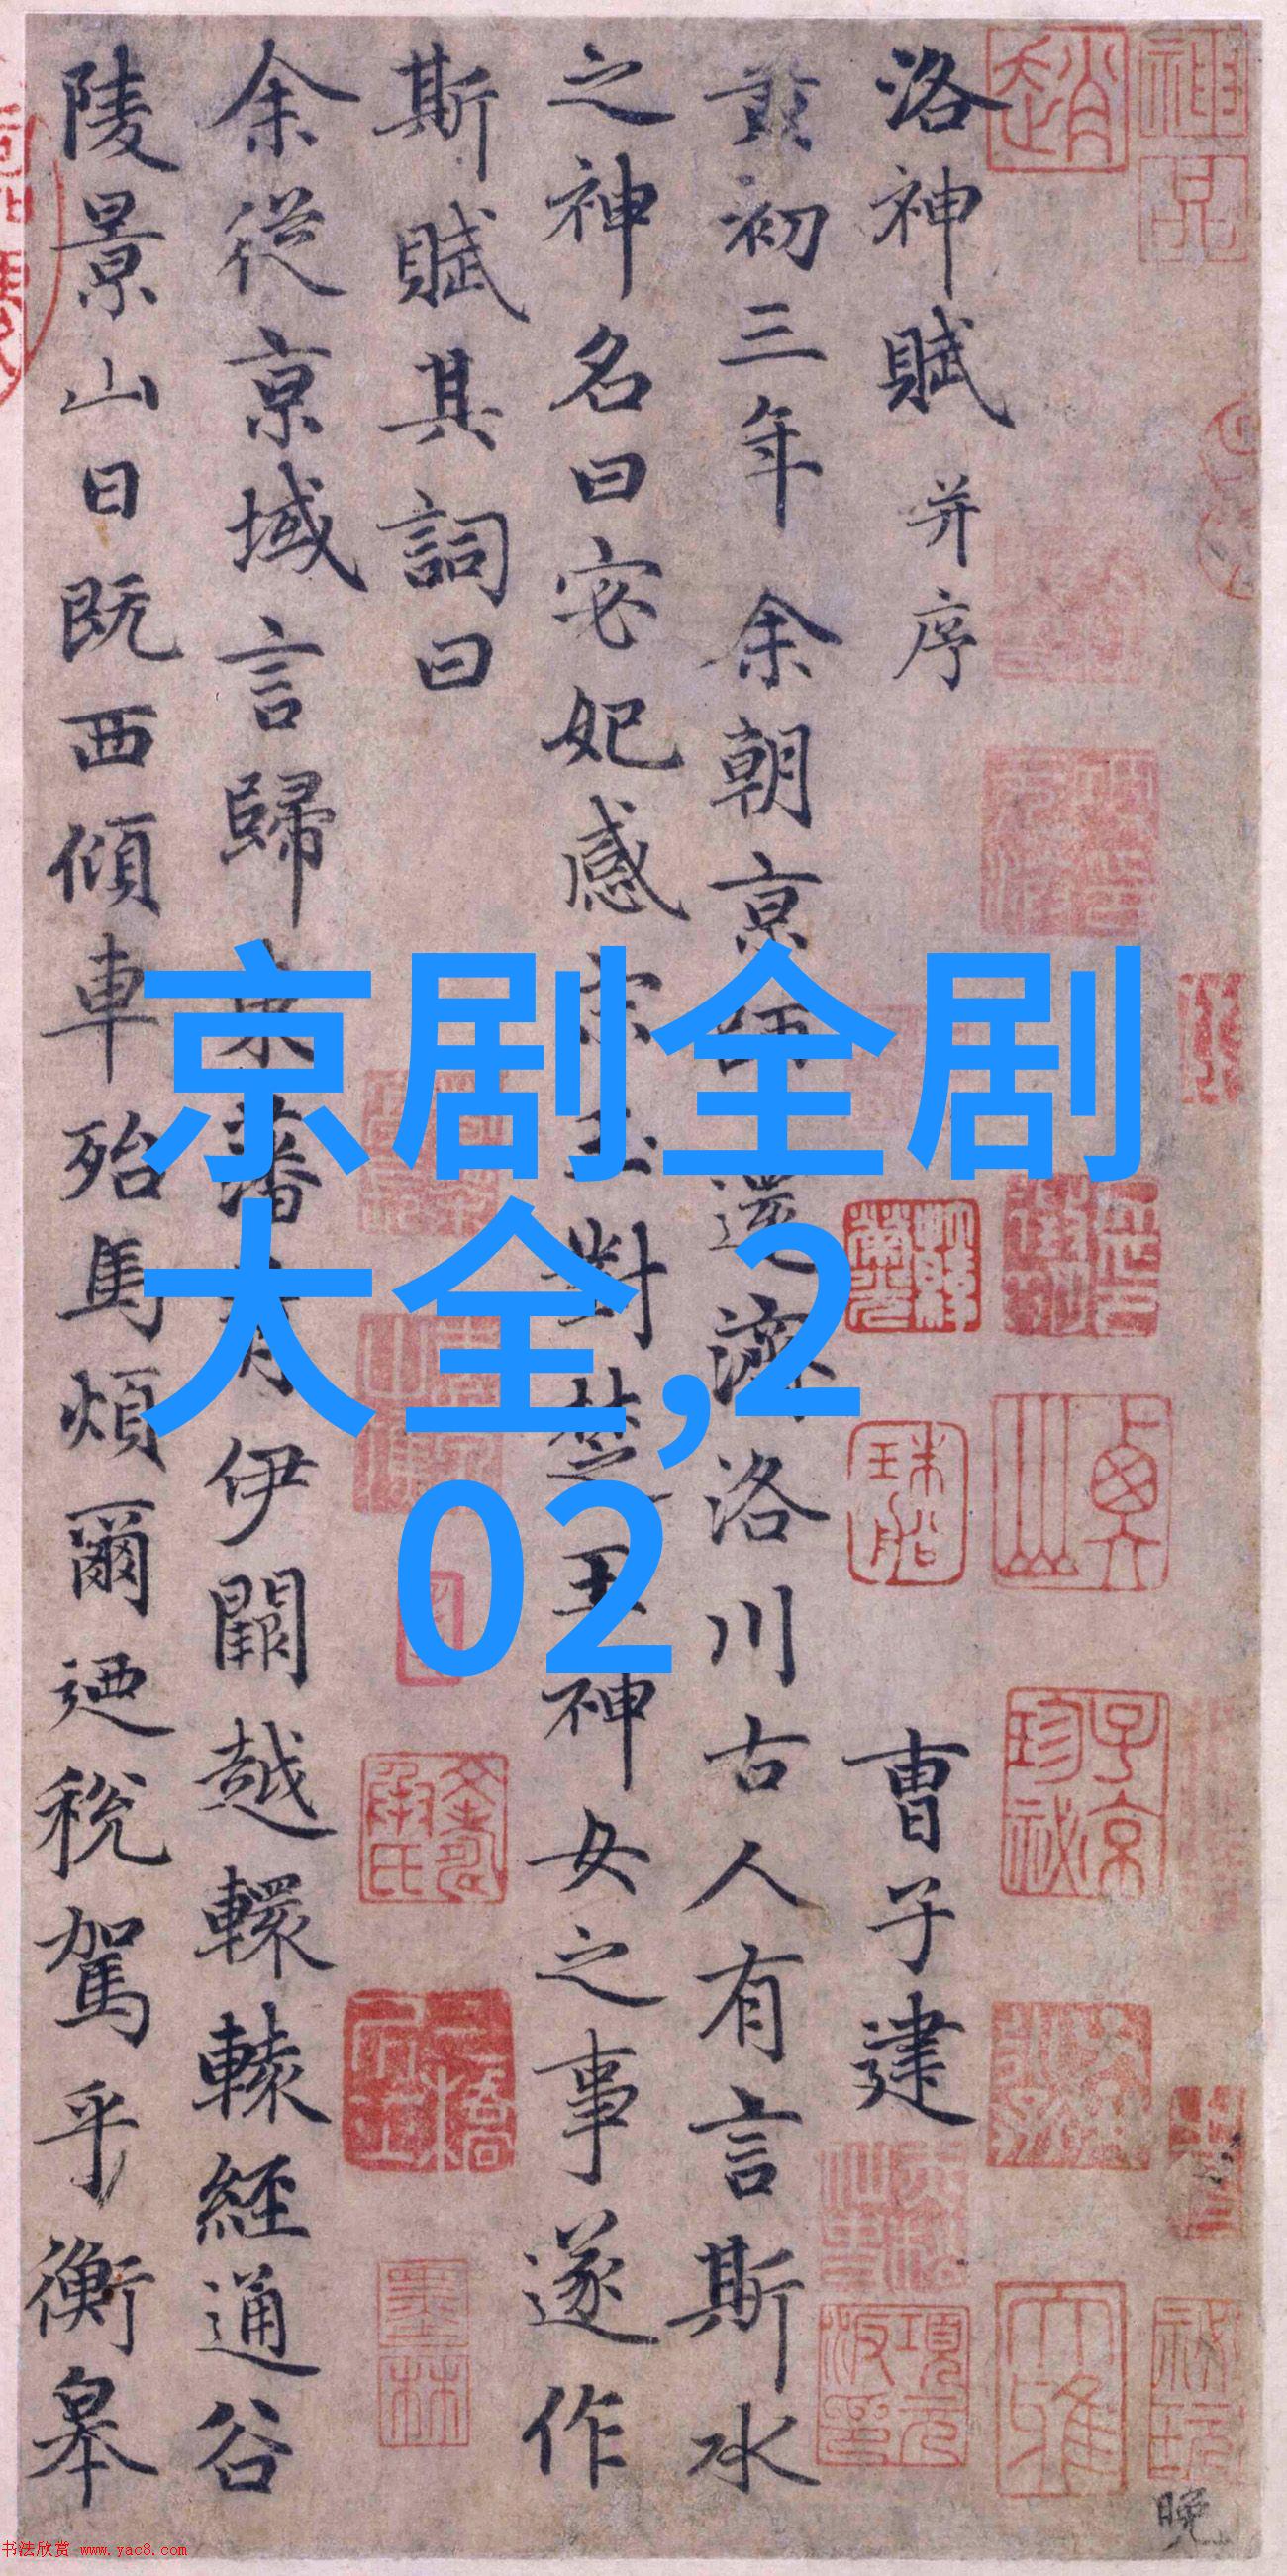 京剧全剧
大全,2
02
洛神賦 并序 曹子建
黃初三年余朝京師還濟洛川古人有言斯水
之神名曰宓妃感宋玉對楚王神女之事遂作
斯賦其詞曰
余從京域言歸東藩背伊闕越轘轅經通谷
陵景山日既西傾車殆馬煩爾迺稅駕乎衡皋
趙
神品
子京珍祕
墨林
大雅
項元汴印
晚
书法欣赏 www.yac8.com